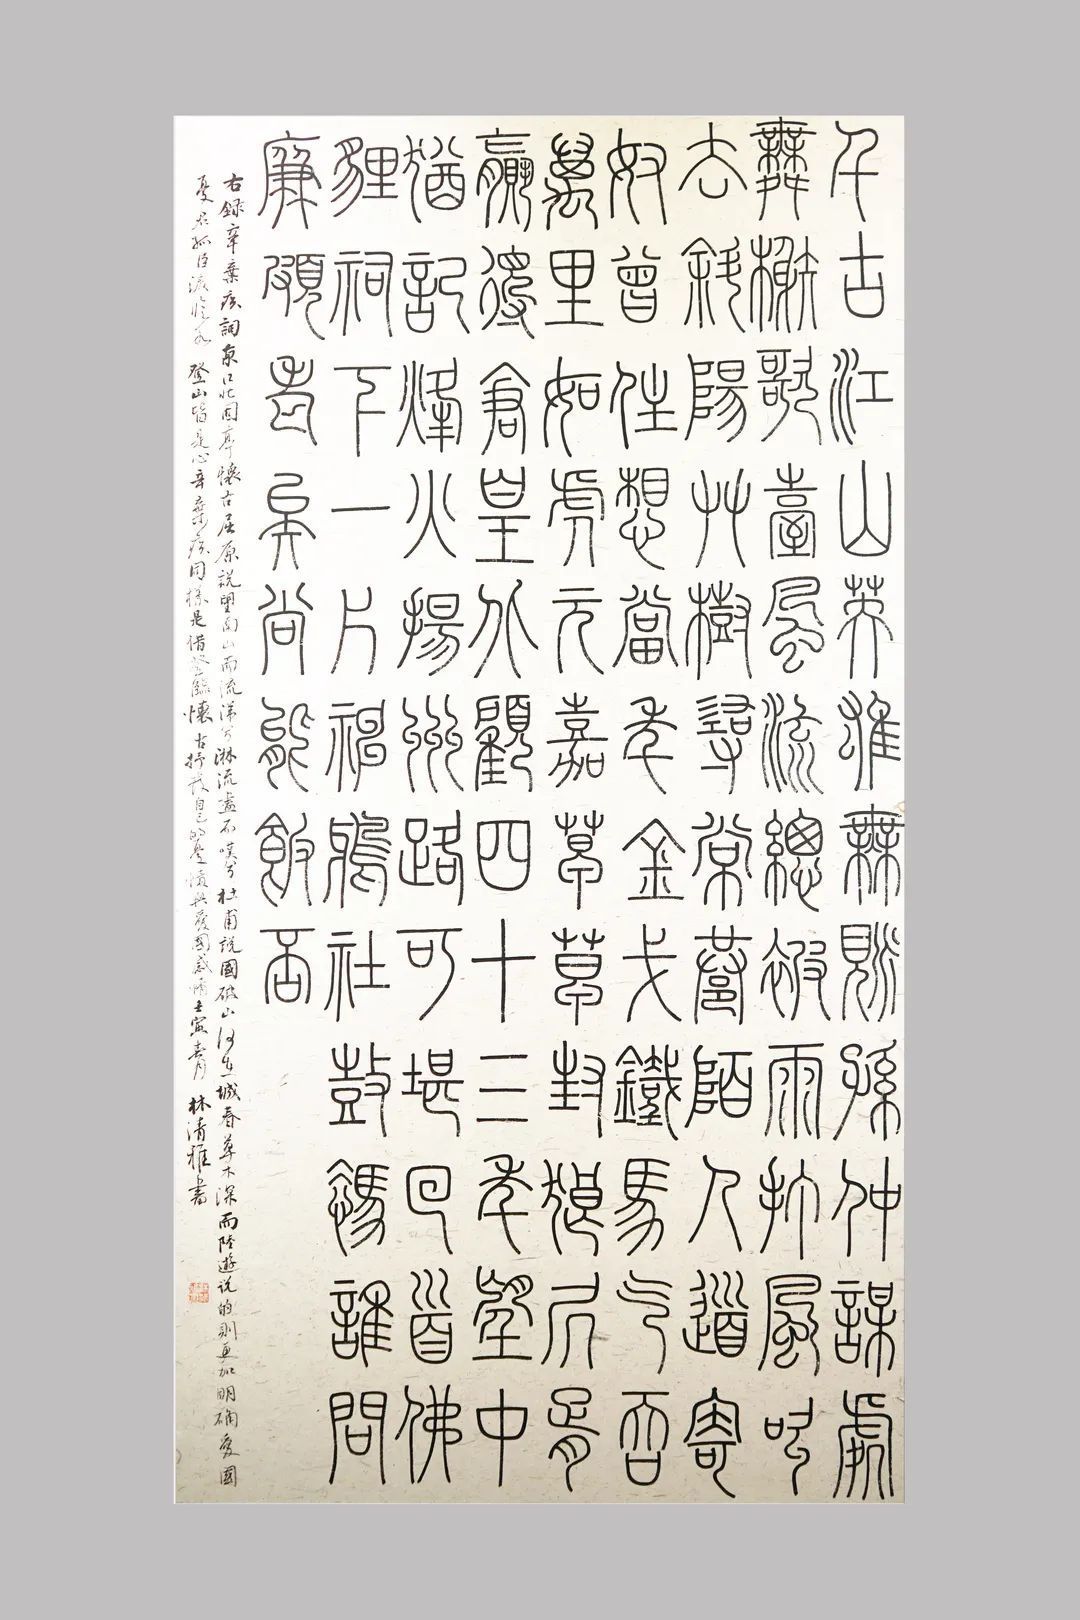 千古江山英雄無覓孫仲謀處
舞榭歌臺風流總被雨打風吹
去斜陽艸樹尋常巷陌人道寄
奴曾住想當年金戈鐵馬气吞
萬里如虎元嘉草草封狼居胥
贏得倉皇北顧四十三年望中
猶記烽火揚州路可堪回首佛
貍祠下一片神鴉社鼓憑誰問
廉頗老矣尚能飯否
右錄辛棄疾詞京口北固亭懷古屈原說望南山而流涕兮淋流盡不嘆兮杜甫說國破山河在城春草木深而陸遊说的则更加明确爱國
憂君孤臣淚臨水登山皆是心辛棄疾同樣是借登臨懷古抒發自己的憂憤與愛國感情壬寅春月林清雅書